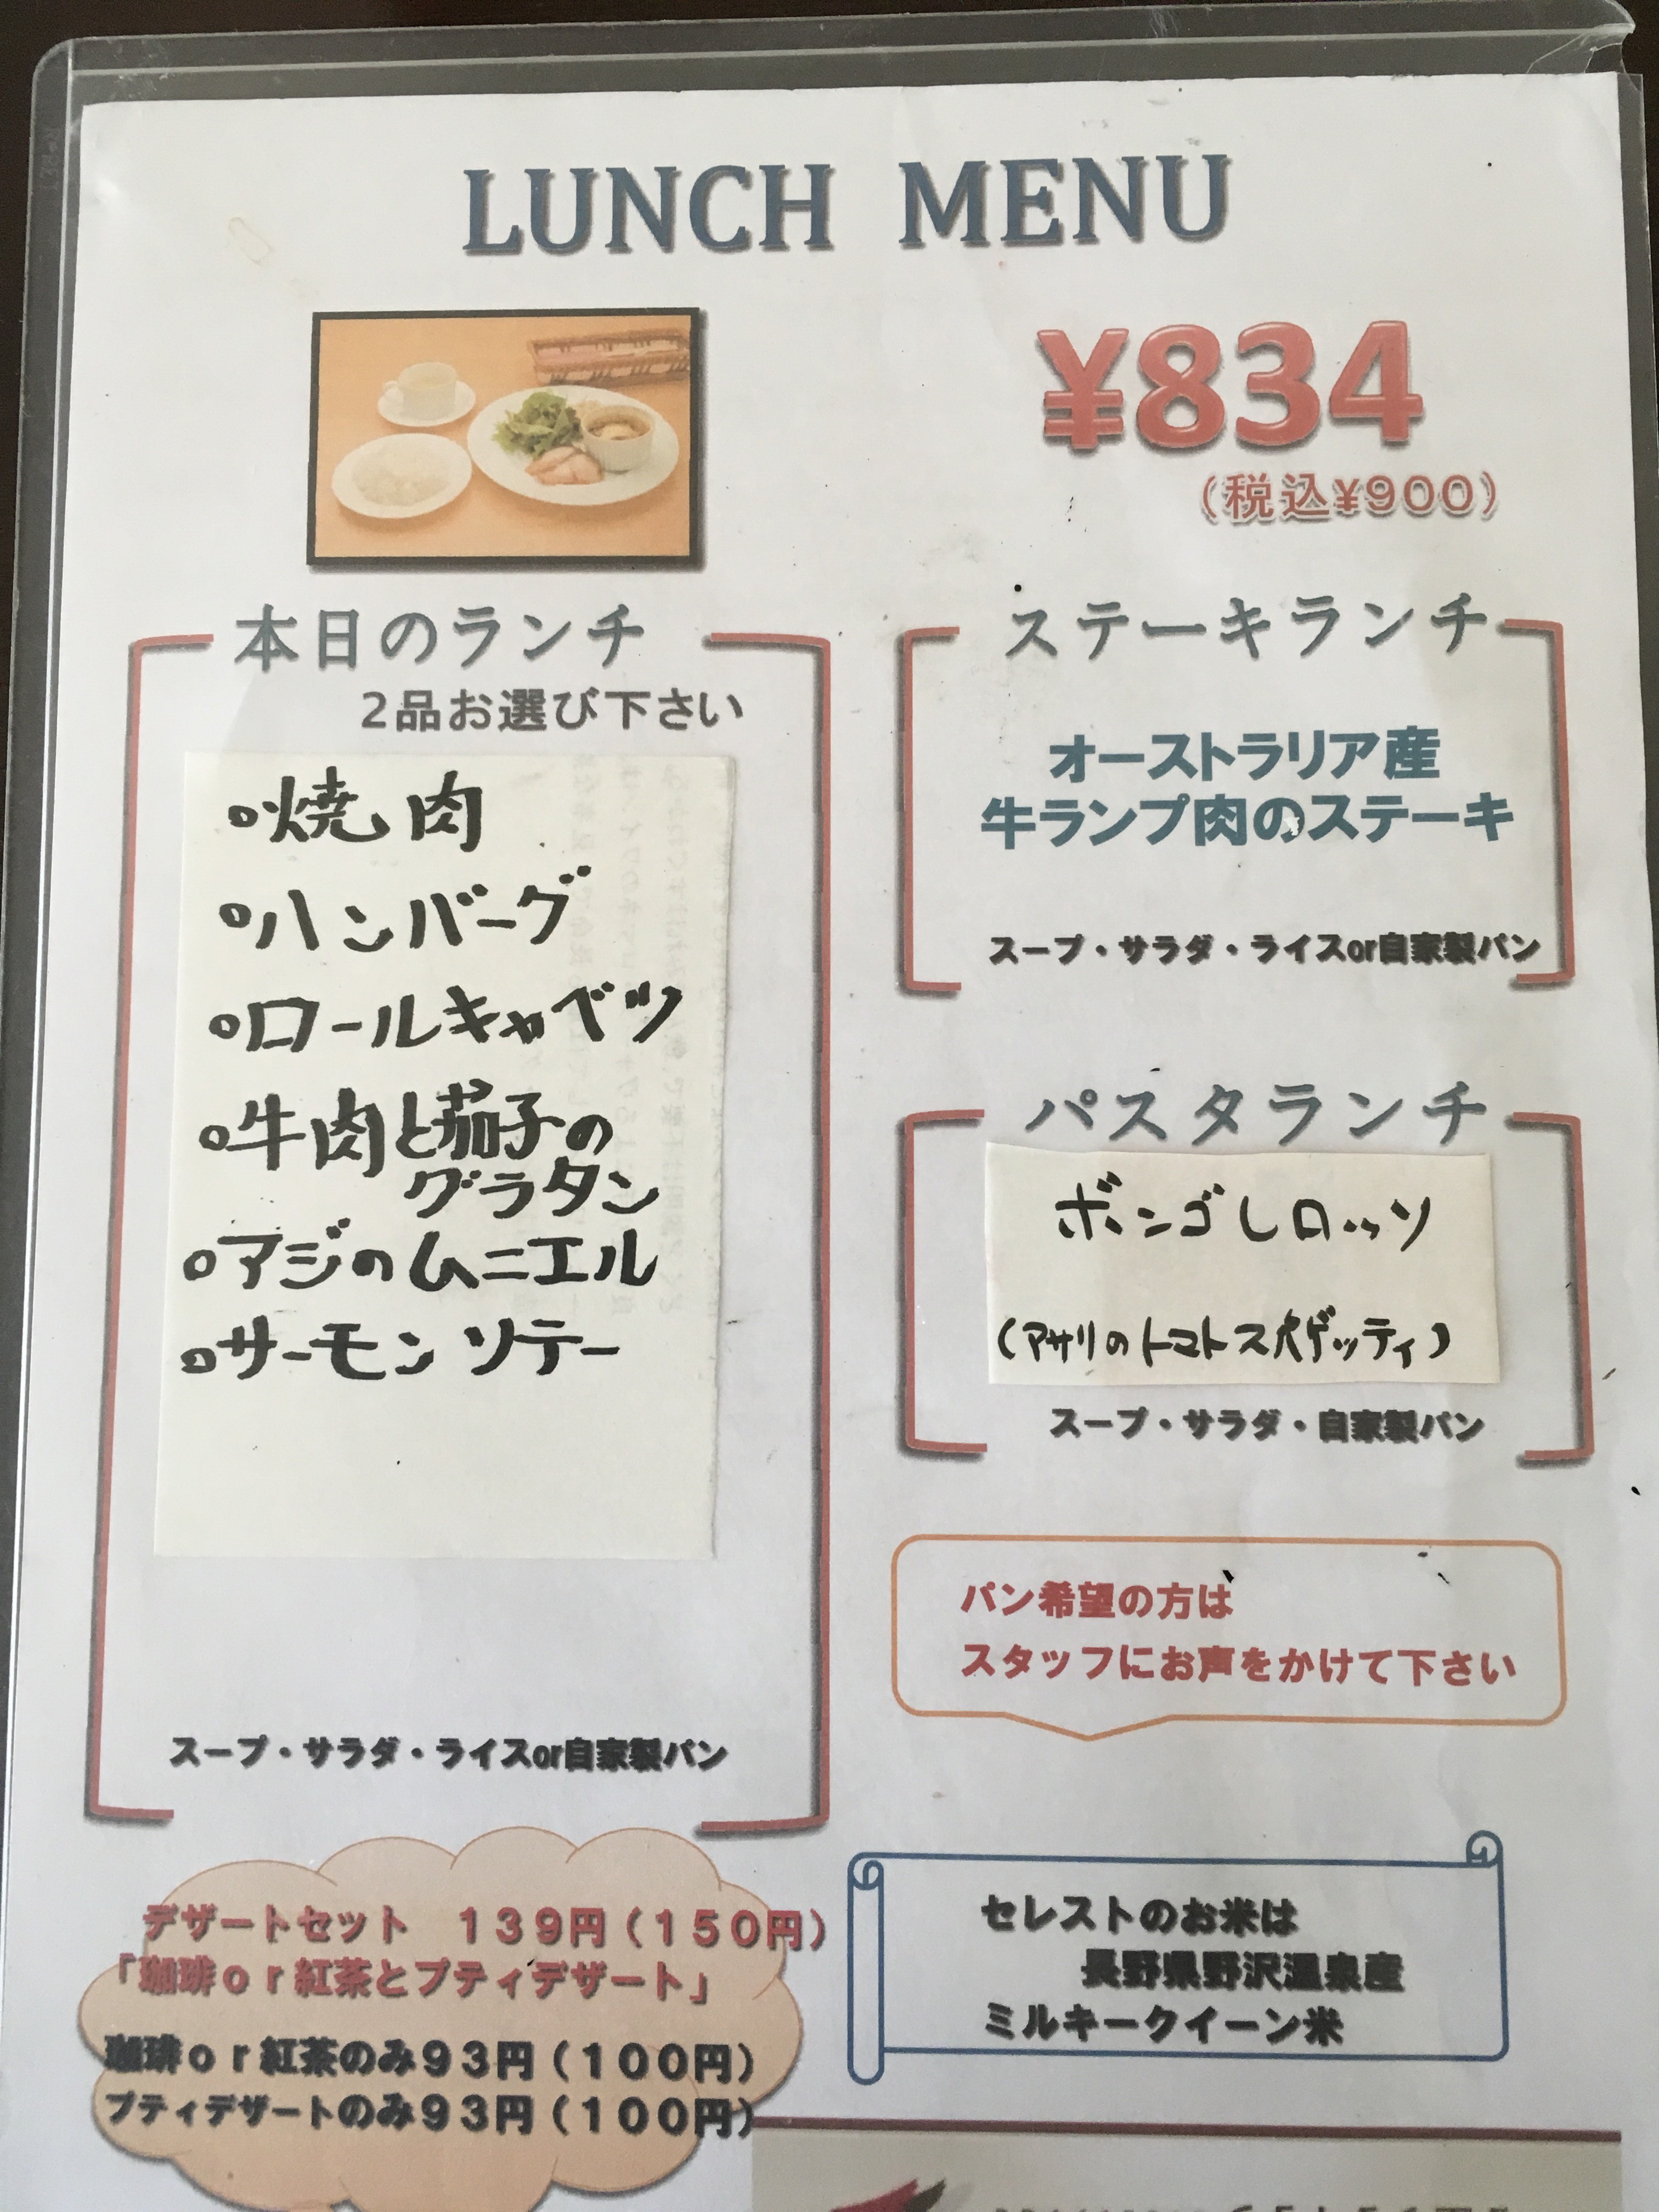 LUNCH MENU
¥834
（税込¥900）
本日のランチ
2品お選び下さい
○焼肉
○ハンバーグ
○ロールキャベツ
○牛肉と茄子の
グラタン
○アジのムニエル
○サーモンソテー
スープ・サラダ・ライスor自家製パン
ステーキランチ
オーストラリア産
牛ランプ肉のステーキ
スープ・サラダ・ライスor自家製パン
パスタランチ
ボンゴレロッソ
(アサリのトマトスパゲッティ)
スープ・サラダ・自家製パン
パン希望の方は
スタッフにお声をかけて下さい
デザートセット　１３９円（１５０円）
「珈琲ｏｒ紅茶とプティデザート」
珈琲ｏｒ紅茶のみ９３円（１００円）
プティデザートのみ９３円（１００円）
セレストのお米は
長野県野沢温泉産
ミルキークイーン米